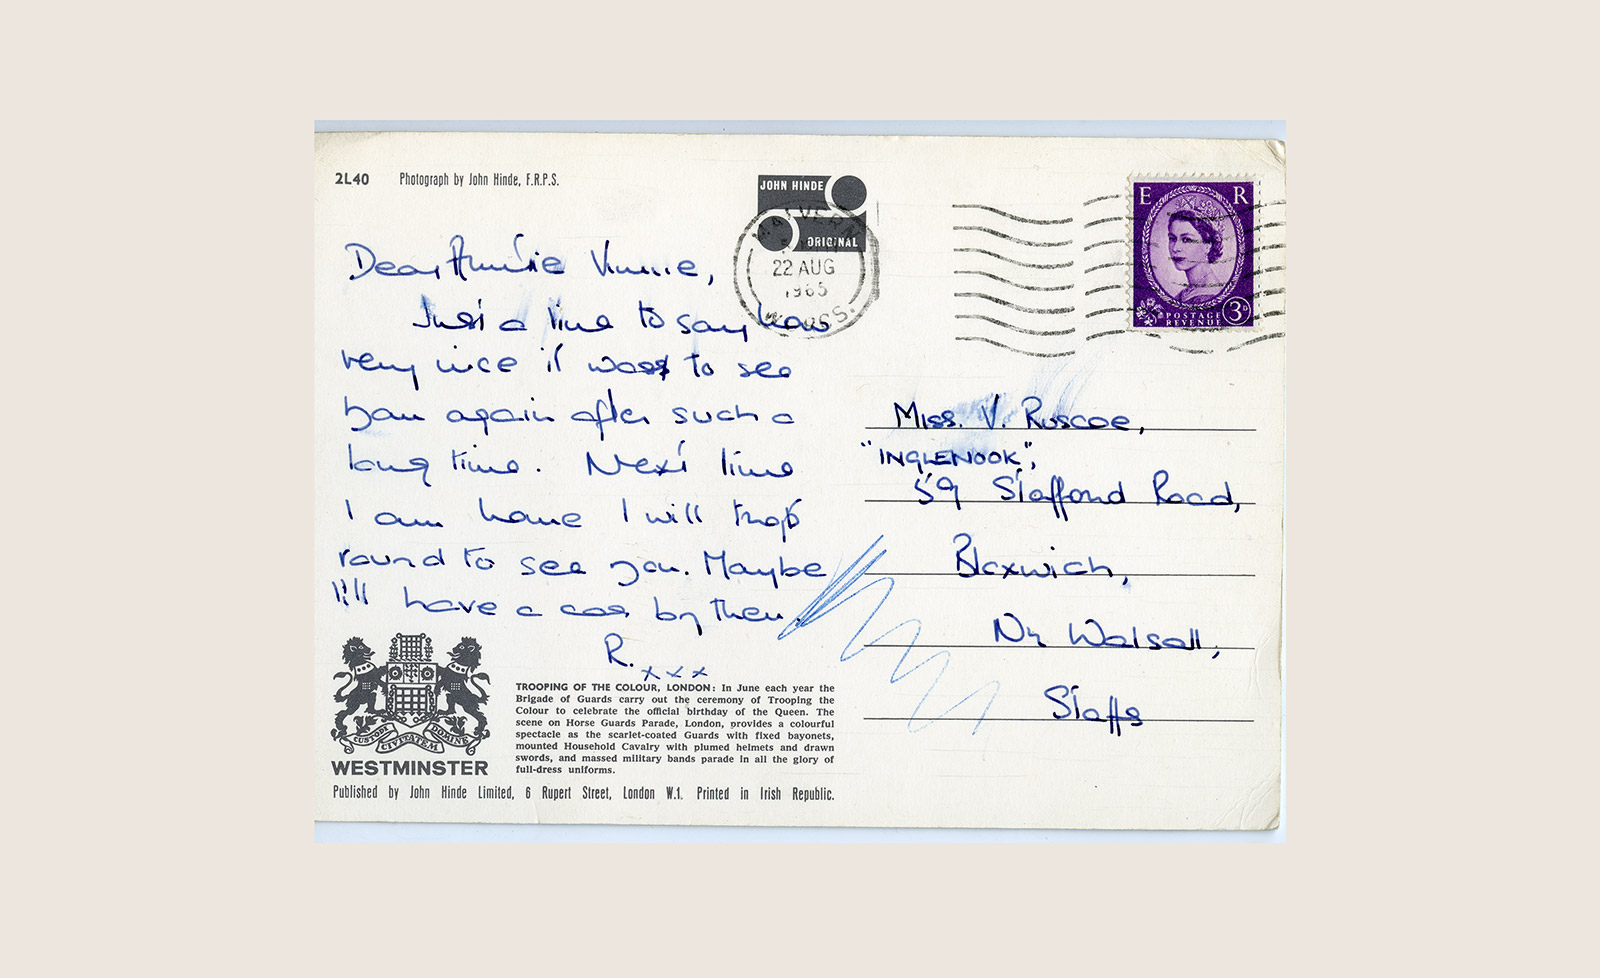 2L40 Photograph by John Hinde, F.R.P.S.
JOHN HINDE
ORIGINAL
MALVERN
22 AUG
1965
WORCS.
E R
POSTAGE
REVENUE
3D
Dear Auntie Vinnie,
Just a line to say how
very nice it was to see
you again after such a
long time. Next time
I am home I will trot
round to see you. Maybe
I'll have a car by then.
R. xxx
Miss. V. Ruscoe,
"INGLENOOK",
59 Stafford Road,
Bloxwich,
Nr Walsall,
Staffs
CUSTODI CIVITATEM DOMINE
WESTMINSTER
TROOPING OF THE COLOUR, LONDON: In June each year the
Brigade of Guards carry out the ceremony of Trooping the
Colour to celebrate the official birthday of the Queen. The
scene on Horse Guards Parade, London, provides a colourful
spectacle as the scarlet-coated Guards with fixed bayonets,
mounted Household Cavalry with plumed helmets and drawn
swords, and massed military bands parade in all the glory of
full-dress uniforms.
Published by John Hinde Limited, 6 Rupert Street, London W.1. Printed in Irish Republic.